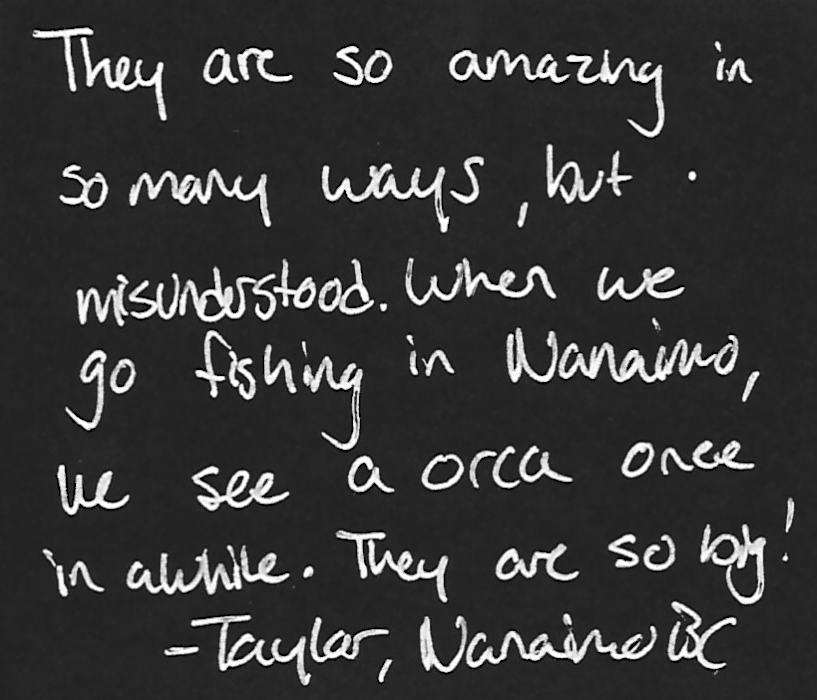 They are so amazing in
so many ways, but
misunderstood. When we
go fishing in Nanaimo,
we see a orca once
in awhile. They are so big!
-Taylor, Nanaimo BC